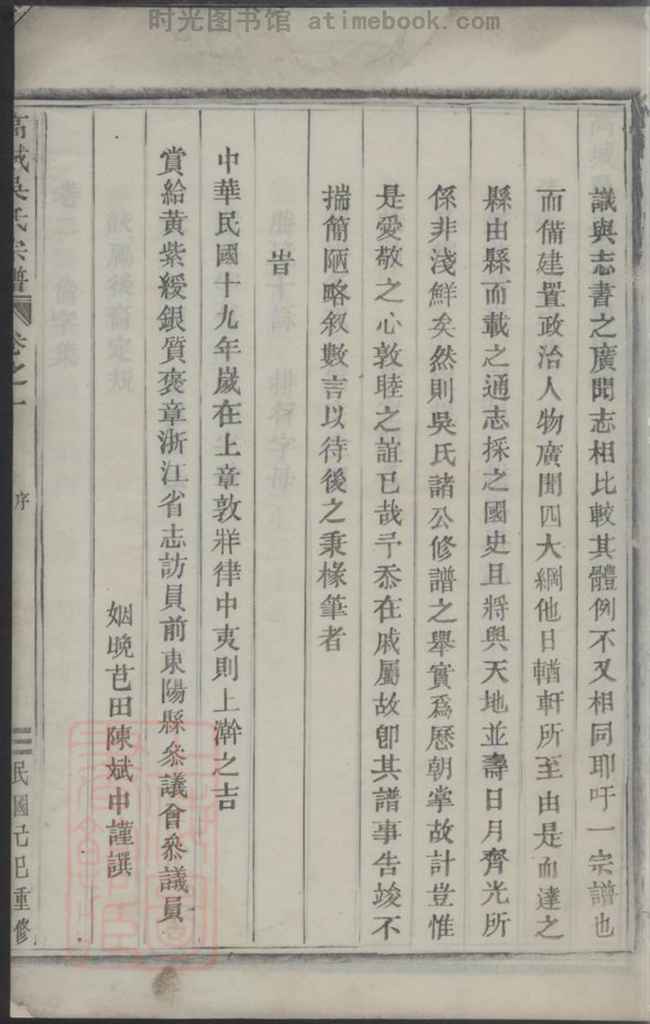 时光图书馆 atimebook.com
識與志書之廣聞志相比較其體例不又相同耶吁一宗譜也
而備建置政治人物廣聞四大綱他日輶軒所至由是而達之
縣由縣而載之通志採之國史且將與天地並壽日月齊光所
係非淺鮮矣然則吳氏諸公修譜之舉實爲歷朝掌故計豈惟
是愛敬之心敦睦之誼已哉予忝在戚屬故卽其譜事告竣不
揣簡陋略叙數言以待後之秉椽筆者
旹
中華民國十九年歲在上章敦牂律中夷則上澣之吉
賞給黃紫綬銀質褒章浙江省志訪員前東陽縣叅議會叅議員
姻晚芑田陳斌申謹譔
高城吳氏宗譜 卷之一 序 三 民國己巳重修